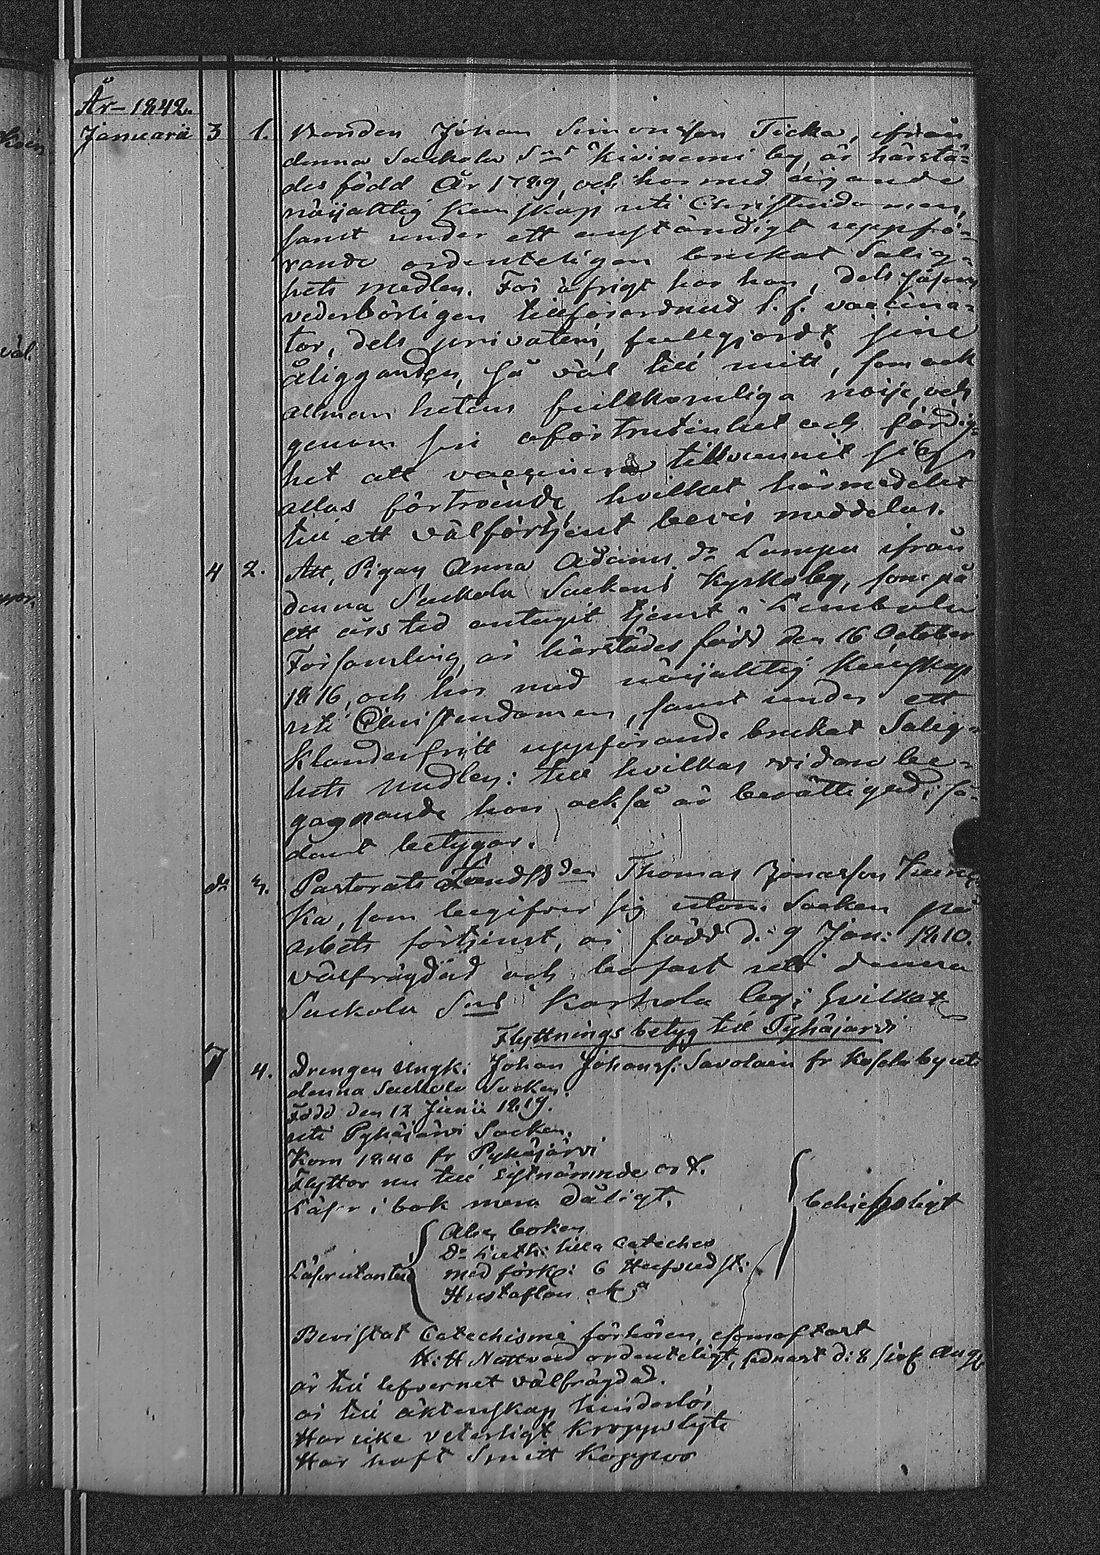 År 1842.
Januarii 3 1. Bonden Johan Simonsson Ticka, ifrån
denna Sackola Sns Kivinemi by, är härstä-
des född År 1789, och har med ägande
nöijaktig Kunskap uti Christendomen,
samt under ett anständigt uppfö-
rande ordenteligen brukat Salig-
hets medlen. För öfrigt har han, dels såsom
vederbörligen tillförordnad t.f. vaccina-
tor, dels privatim, fullgjort sine
åligganden, så väl till mitt, som ock
allmän hetens fullkomliga nöije, och
genom sin oförtrutenhet och färdig-
het att vaccinera tillvunnit sig
allas förtroende, hvilket härmedelst
till ett välförtjent bevis meddelas.
4 2. Att, Pigan Anna Adams dr Lampu ifrån
denna Sackola Sockens Kyrkoby, som på
ett års tid antagit tjenst i Lembola
Församling, är härstädes född den 16 October
1816, och har med nöijaktig Kunskap
uti Christendomen, samt under ett
klanderfritt uppförande brukat Salig-
hets medlen: till hvilkas vidare be-
gagnande hon också är berättigad; så-
damt betygar.
do 3. Pastorats Landsbden Thomas Jonasson
ka, som begifver sig utom Socken på
arbets förtjenst, är född d. 9 Jan: 1810.
välfrägdad och bofast uti denna
Sackola Sns Karhola by; hvilket
Flyttnings betyg till Pyhäjärvi
7 4. Drengen Ungk. Johan Johanss. Savolain fr by uti
denna Sackola Socken.
Född den 12 Junii 1819.
uti Pyhäjärvi Socken.
Kom 1840 fr Pyhäjärvi
Flyttar nu till sistnämnde ort.
Läser i bok mera dåligt.
behjelpeligt
Abc boken
Do Luth: lilla Cateches
Läser utantill
med förkl: 6 Hufvudst:
Hustaflan etc
Bevistat Catechismi förhören,
H:H Nattvard ordenteligt, sednast d: 8 sisl. Aug.
är till lefvernet välfrägdad.
är till äktenskap hinderlös
Har icke veterligt Kroppslyte
Har haft Smitt Koppor